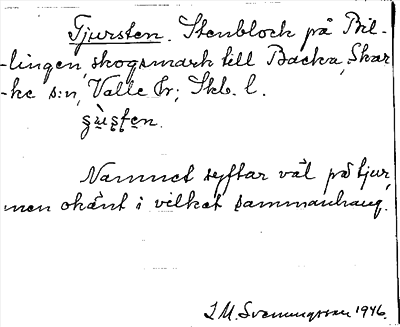 Tjursten. Stenblock på Bil-
-lingen, skogsmark till Backa, Skar-
-ke s:n, Valle hr; Skb. l.
Namnet syftar väl på tjur,
men okänt i vilket sammanhang.
I. M. Svenungsson 1946.